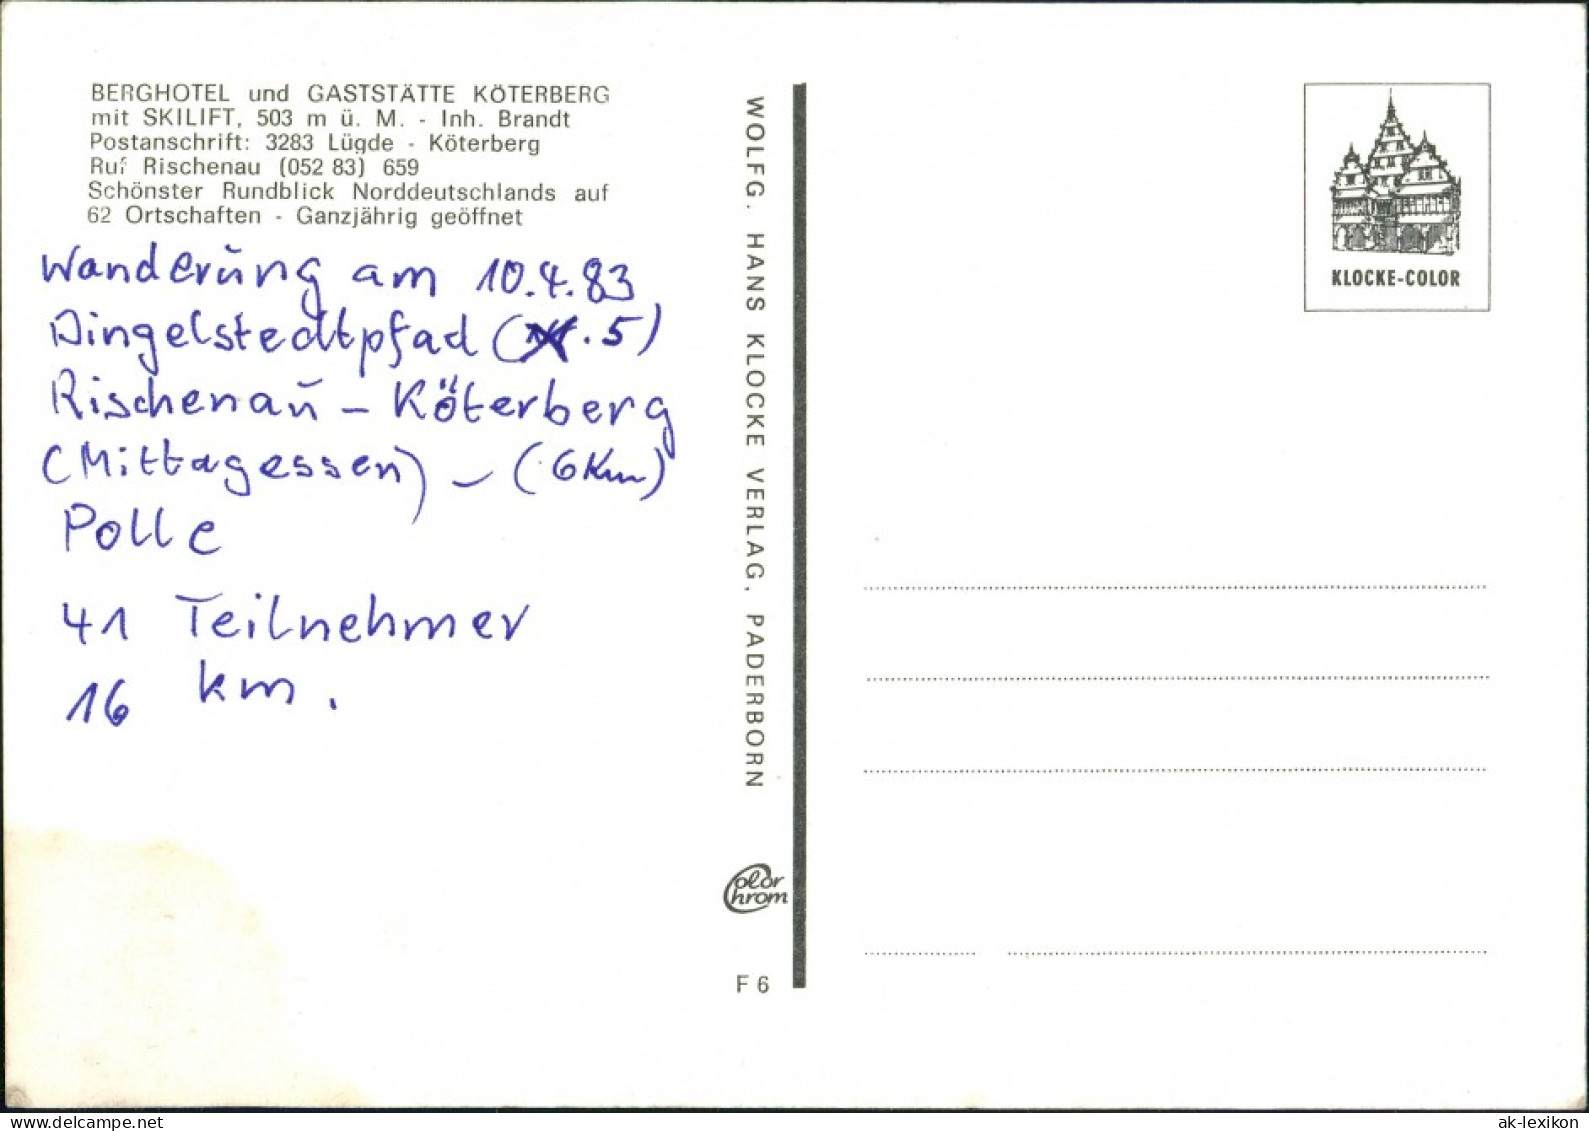 BERGHOTEL und GASTSTÄTTE KÖTERBERG
mit SKILIFT, 503 m ü. M. - Inh. Brandt
Postanschrift: 3283 Lügde - Köterberg
Ruf Rischenau (052 83) 659
Schönster Rundblick Norddeutschlands auf
62 Ortschaften - Ganzjährig geöffnet
Wanderung am 10.4.83
Dingelstedtpfad (X1.5)
Rischenau - Köterberg
(Mittagessen) - (6 Km)
Polle
41 Teilnehmer
16 km.
WOLFG. HANS KLOCKE VERLAG, PADERBORN
Color Chrom
F 6
KLOCKE-COLOR
ak-lexikon